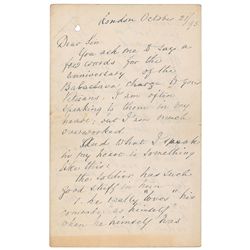 London October 21/95
Dear Sir
You ask me to say a
few words for the
anniversary of the
Balaclava Charge to your
Veterans. I am often
speaking to them in my
heart; but I am much
overworked
And what I speak
in my heart is something
like this:
The Soldier has such
good stuff in him
he really "loves" his
comrade as himself"
when he himself has